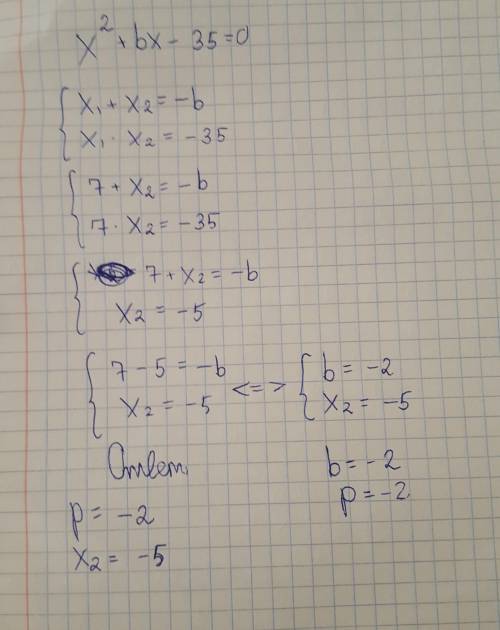 x² + bx - 35 = 0
{ x₁ + x₂ = -b
x₁ · x₂ = -35
{ 7 + x₂ = -b
7 · x₂ = -35
{ 7 + x₂ = -b
x₂ = -5
{ 7 - 5 = -b <=> { b = -2
x₂ = -5 x₂ = -5
Ответ: b = -2
p = -2
p = -2
x₂ = -5